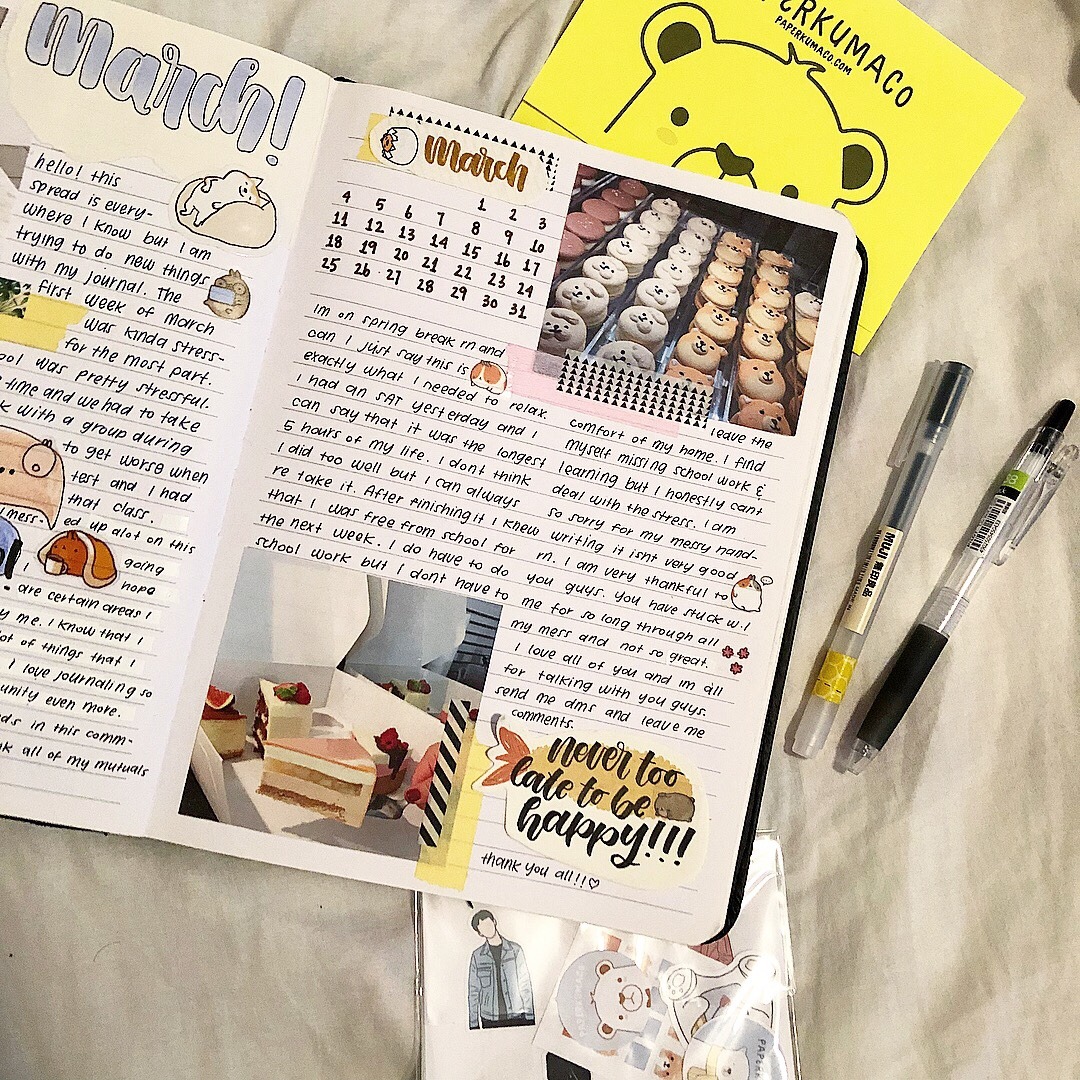 March!
hello! this
spread is every-
where I know but I am
trying to do new things
with my journal. The
first week of March
was kinda stress-
for the most part.
ool was pretty stressful.
time and we had to take
k with a group during
to get worse when
test and I had
that class.
mess-
ed up alot on this
going
I
hope
are certain areas I
y me. I know that I
lot of things that I
I love journaling so
unity even more.
nds in this comm-
nk all of my mutuals
March
1 2 3
4 5 6 7 8 9 10
11 12 13 14 15 16 17
18 19 20 21 22 23 24
25 26 27 28 29 30 31
Im on spring break rn and
can I just say this is
exactly what I needed to relax.
I had an SAT yesterday and I
can say that it was the longest
5 hours of my life. I dont think
I did too well but I can always
re take it. After finishing it I knew
that I was free from school for
the next week. I do have to do
school work but I dont have to
leave the
comfort of my home. I find
myself missing school work &
learning but I honestly cant
deal with the stress. I am
so sorry for my messy hand-
writing it isnt very good
rn. I am very thankful to
you guys. You have stuck w.i
me for so long through all
my mess and not so great.
I love all of you and im all
for talking with you guys.
send me dms and leave me
comments.
never too
late to be
happy!!!
thank you all!!♡
PERKUMACO
PAPERKUMACO.COM
MUJI 無印良品